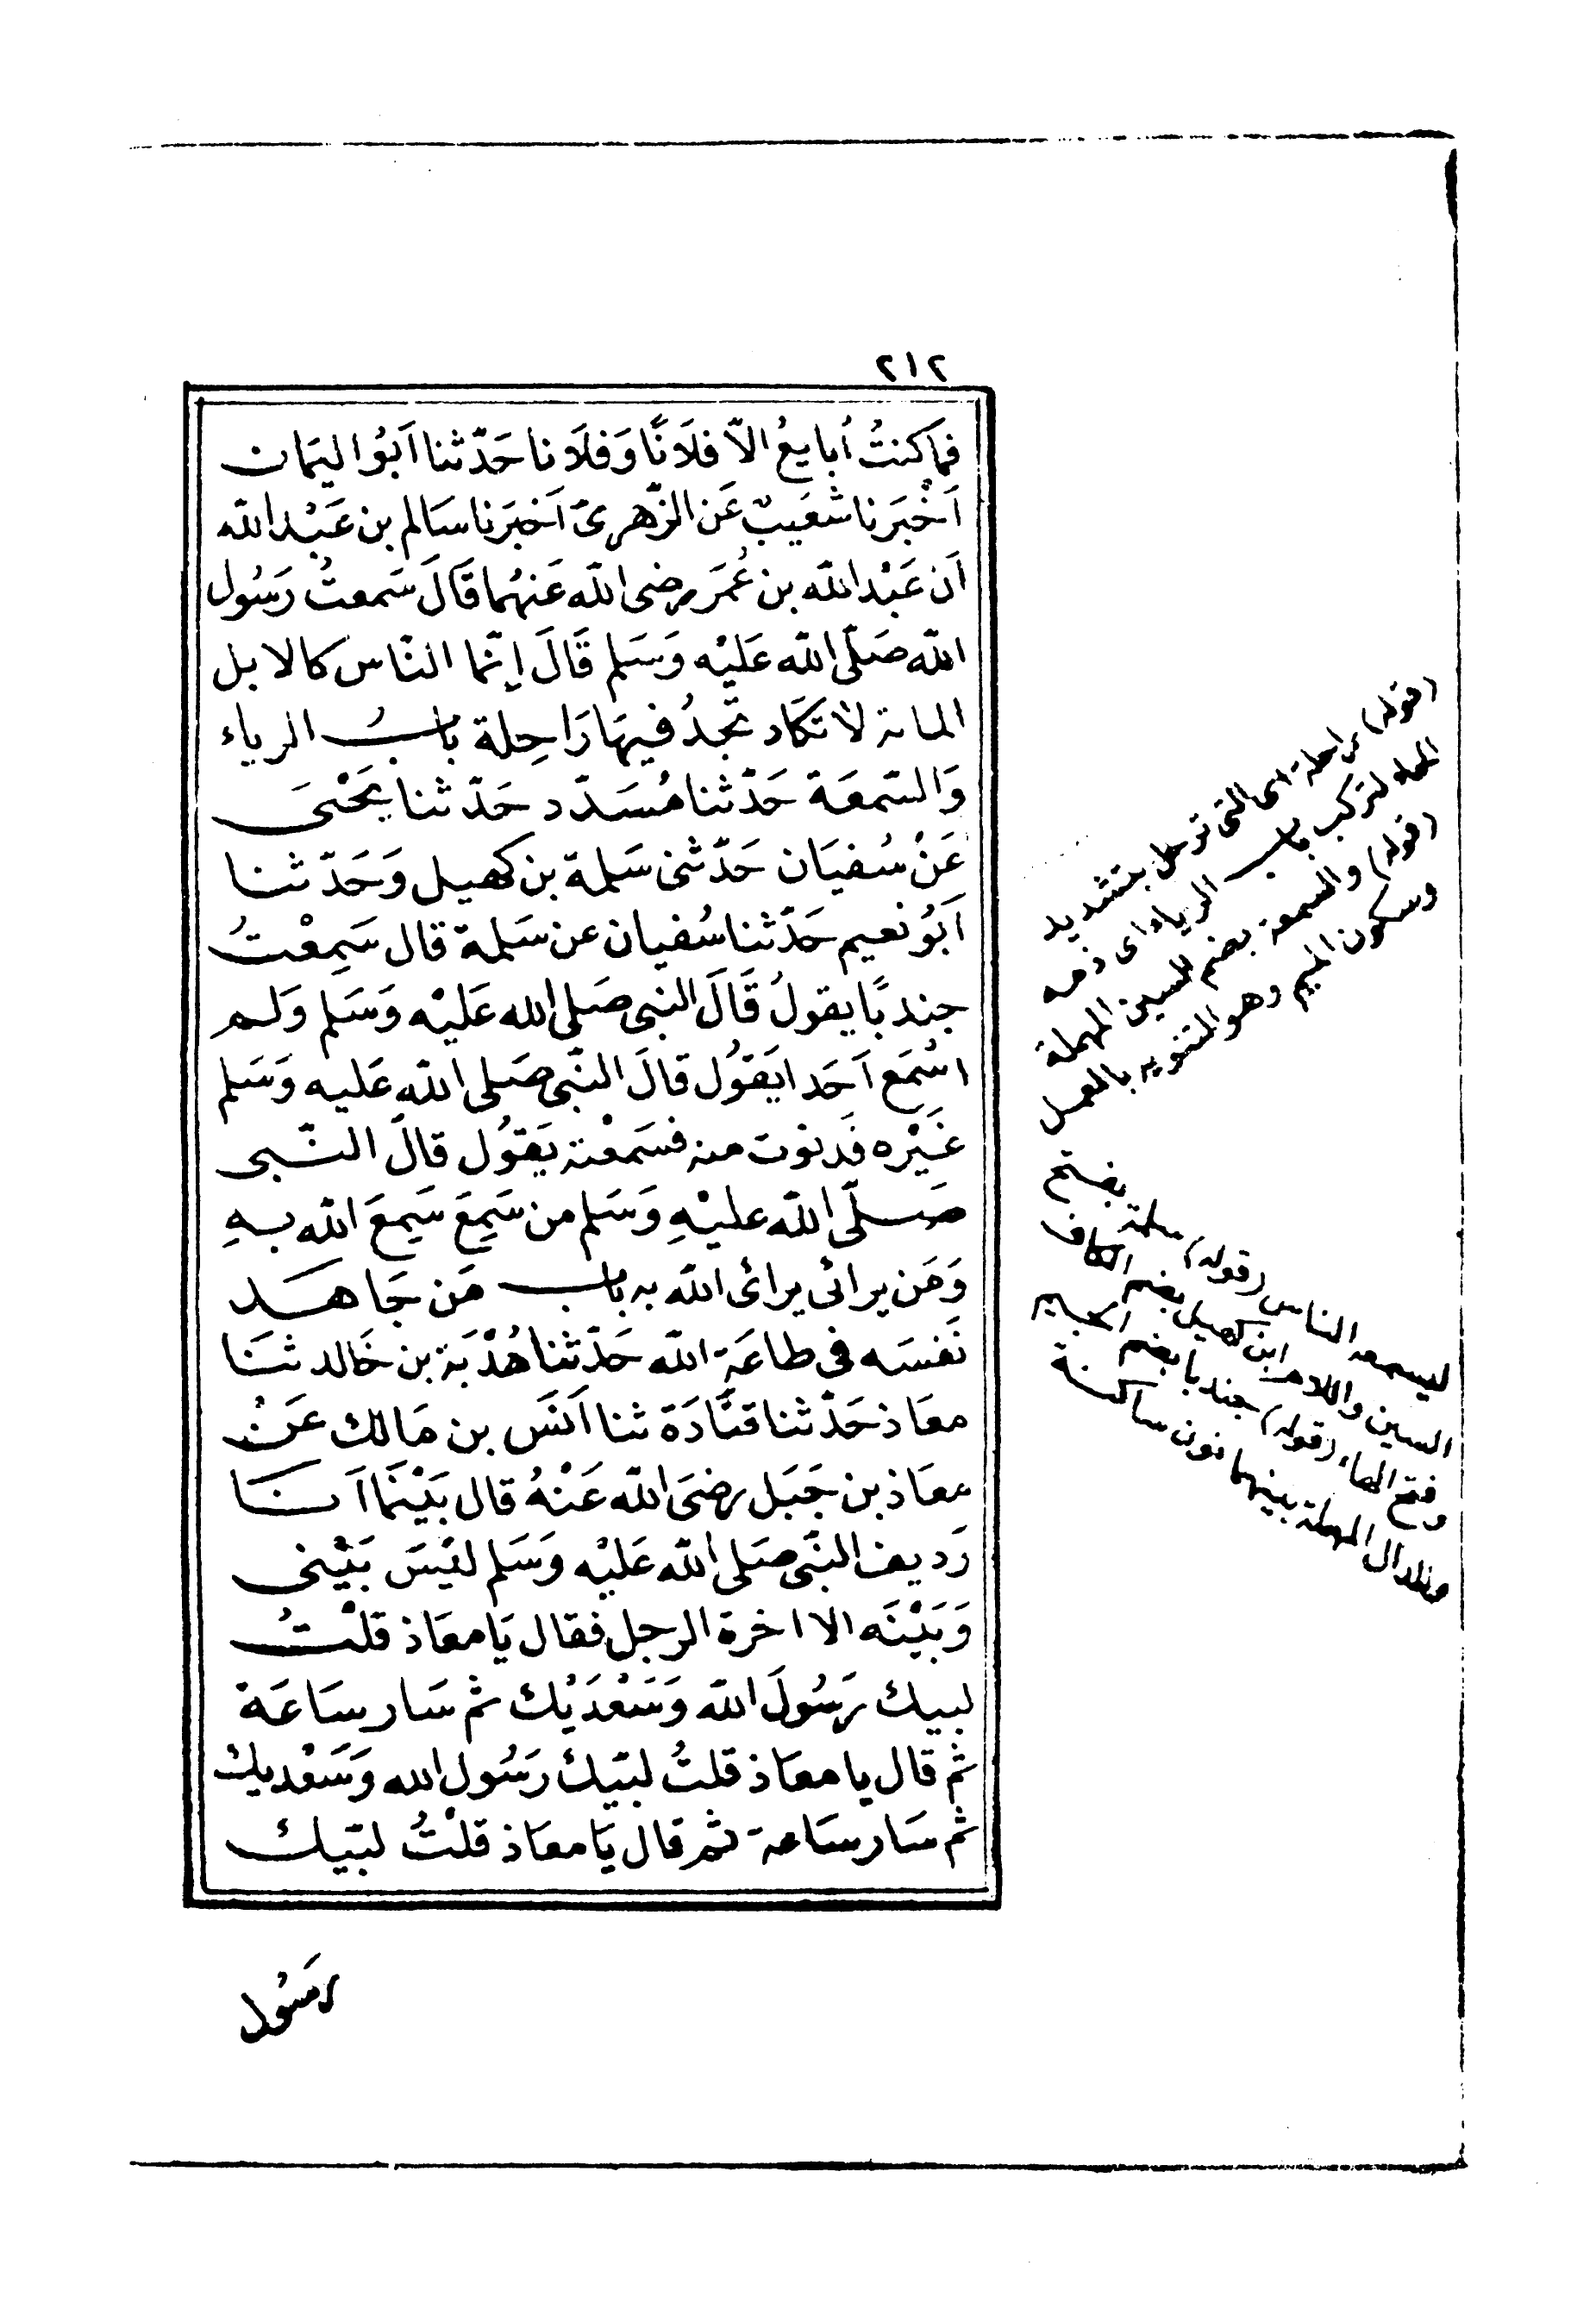 ٢١٢
فمَا كنتُ أُبايعُ الاّ فلَانًا وَفلَانا حَدّثنا اَبُو اليَمان
اَخْبَرنا شعَيبٌ عَن الزّهرىّ اَخبَرنا سَالم بن عَبْد الله
اَن عَبْد الله بن عُمَر رضى الله عَنهُما قَالَ سَمعتُ رَسُول
الله صَلّى الله عَليْه وَسَلم قَالَ إنّما النّاس كالابل
المائة لا تكَاد تجدُ فيهَا رَاحِلة بابُ الرياء
وَالسّمعَة حَدّثنا مُسَدّد حَدّثنا يَحْيَى
عَنْ سُفيَان حَدّثنى سَلمة بن كهيل وَحَدّثنا
اَبُو نعيم حَدّثنا سُفيان عن سَلمة قال سَمِعْتُ
جندبًا يقولُ قَالَ النبى صَلى الله عَليْه وَسَلم وَلم
اسْمَع اَحَدا يَقوُل قالَ النّبى صَلى الله عَليه وَسَلم
غَيْره فَدنوت منه فسَمعْته يَقوُل قالَ النّبى
صَلّى الله عليْهِ وَسَلم من سَمِعَ سَمِعَ الله بهِ
وَمَن يرائى يرائ الله به باب مَن جَاهَد
نَفسَه فى طاعَة الله حَدّثنا هُدْبَة بن خَالد ثنَا
معَاذ حَدّثنا قتَادَة ثنا اَنَس بن مَالك عَنْ
معَاذ بن جَبَل رضىَ الله عَنْهُ قال بَيْنمَا اَنَا
رَديف النّبى صَلى الله عَليْه وَسَلم ليْسَ بَيْنى
وَبَيْنَه الا اخرة الرحل فقال يَا معَاذ قلْتُ
لبيك رَسُولَ الله وَسَعْدَيْك ثم سَار سَاعَة
ثم قال يا معَاذ قلتُ لبّيك رَسُول الله وَسَعْديك
ثم سَار سَاعة ثم قال يَا معَاذ قلْتُ لبّيك
رسَوُل
(قوله) راحلة اى التى ترحل بتشديد
الحاء لتركب باب الرياء اى ذمه
(قوله) والسمعة بضم السين المهملة
وسكون الميم وهو التنويه بالعمل
ليسمعه الناس (قوله) سلمة بفتح
السين واللام ابن كهيل بضم الكاف
وفتح الهاء (قوله) جندبا بضم الجيم
والدال المهملة بينهما نون ساكنة